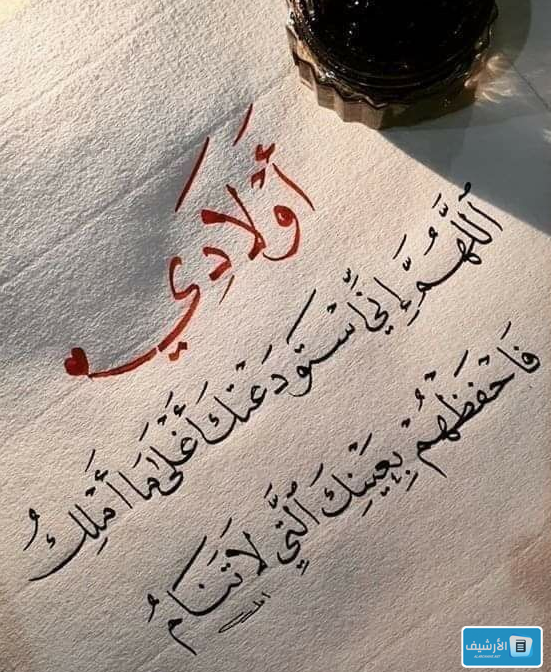 أَوْلَادِي
اَللّٰهُمَّ إِنِّي اسْتَوْدَعْتُكَ أَغْلَىٰ مَا أَمْلِكُ
فَاحْفَظْهُمْ بِعَيْنِكَ الَّتِي لَا تَنَامُ
الأرشيف